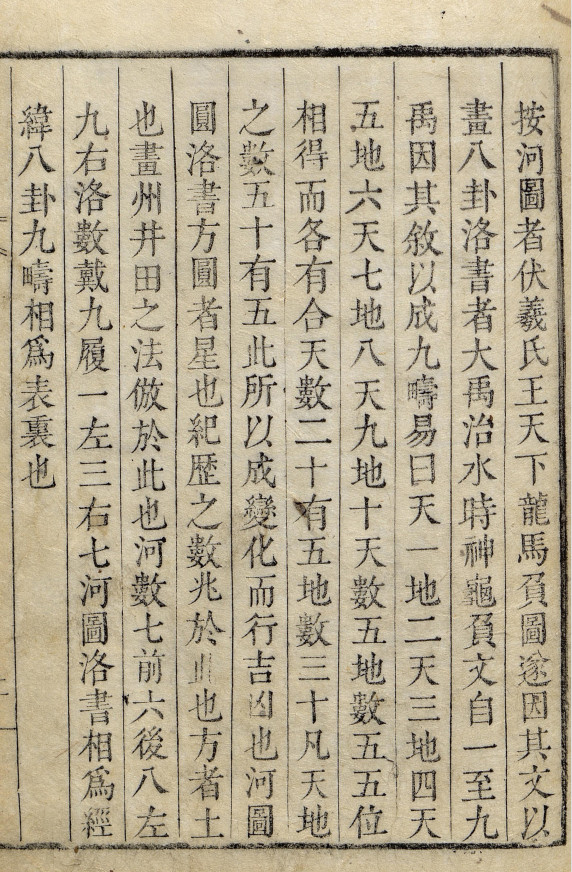 按河圖者伏羲氏王天下龍馬負圖遂因其文以
畫八卦洛書者大禹治水時神龜負文自一至九
禹因其敘以成九疇易曰天一地二天三地四天
五地六天七地八天九地十天數五地數五五位
相得而各有合天數二十有五地數三十凡天地
之數五十有五此所以成變化而行吉凶也河圖
圓洛書方圓者星也紀歷之數兆於此也方者土
也畫州井田之法倣於此也河數七前六後八左
九右洛數戴九履一左三右七河圖洛書相為經
緯八卦九疇相為表裏也